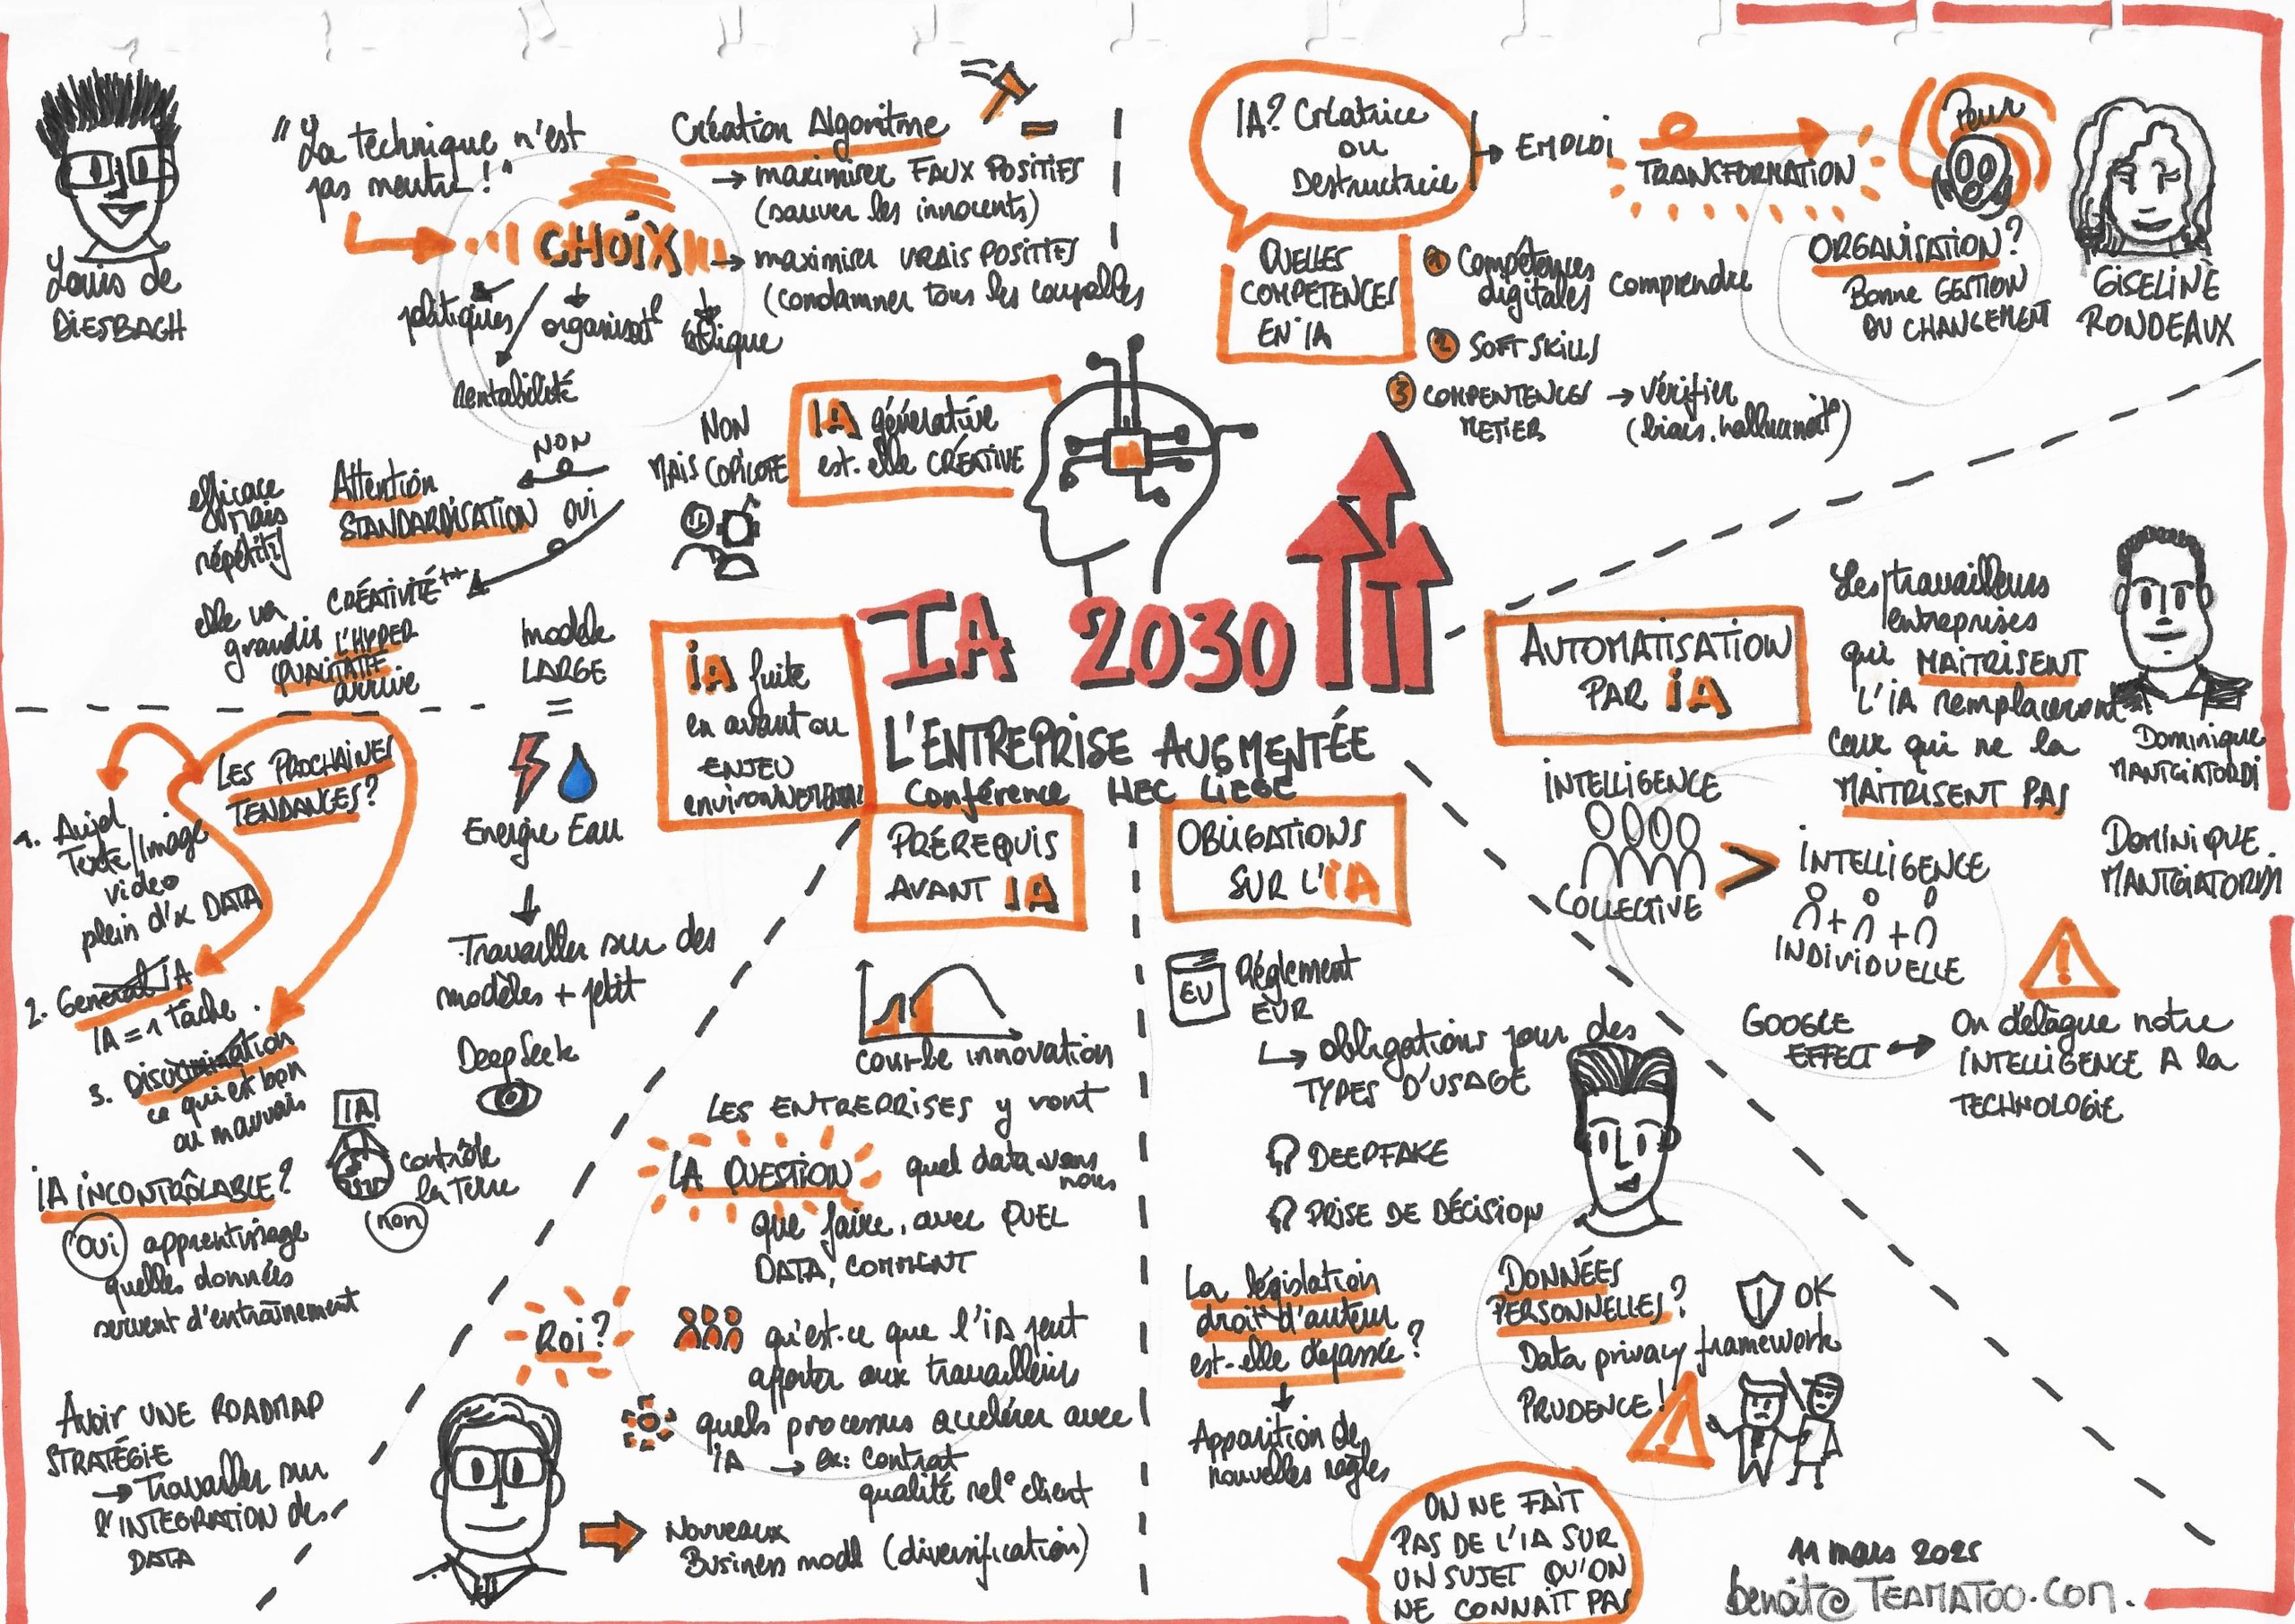 Louis de
DIESBACH
"La technique n'est
pas neutre!"
CHOIX
politiques
organisat°
éthique
rentabilité
Création Algoritme
→ maximiser FAUX POSITIFS
(sauver les innocents)
→ maximiser VRAIS POSITIFS
(condamner tous les coupables
IA générative
est-elle CRÉATIVE
NON
MAIS COPILOTE
NON
OUI
Attention
STANDARDISATION
efficace
mais
répétitif
CRÉATIVITÉ++
elle va
grandir
L'HYPER
QUALITATIF
arrive
IA? Créatrice
ou
Destructrice
→ EMPLOI
TRANSFORMATION
Peur
ORGANISATION?
Bonne GESTION
DU CHANGEMENT
GISELINE
RONDEAUX
QUELLES
COMPÉTENCES
EN IA
1 Compétences
digitales
comprendre
2 SOFT SKILLS
3 COMPENTENCES
METIER
→ vérifier
(biais, hallucinat°)
IA 2030
L'ENTREPRISE AUGMENTÉE
Conférence HEC LIEGE
IA fuite
en avant ou
ENJEU
environNEMENTAL
modèle
LARGE
=
Energie Eau
Travailler sur des
modèles + petit
DeepSeek
LES PROCHAINES
TENDANCES?
1. Aujd
Texte/Image
video
plein d'x DATA
2. General IA
IA = 1 tâche
3. Discrimination
ce qui est bon
ou mauvais
IA
contrôle
la terre
non
IA INCONTRÔLABLE?
OUI apprentissage
quelles données
servent d'entraînement
AVOIR UNE ROADMAP
STRATÉGIE
→ Travailler sur
l'INTEGRATION des
DATA
PRÉREQUIS
AVANT IA
courbe innovation
LES ENTREPRISES y vont
LA QUESTION
quel data vons
nous
que faire, avec QUEL
DATA, COMMENT
ROI?
qu'est-ce que l'IA peut
apporter aux travailleurs
quels processus accélérer avec
IA → ex: contrat
qualité rel° client
Nouveaux
Business modl (diversification)
OBLIGATIONS
SUR L'IA
EU
Réglement
EUR
↳ obligations pour des
TYPES D'USAGE
DEEPFAKE
PRISE DE DÉCISION
La législation
droit d'auteur
est-elle dépassée?
Apparition de
nouvelles règles
DONNÉES
PERSONNELLES?
OK
Data privacy framework
PRUDENCE!
ON NE FAIT
PAS DE L'IA SUR
UN SUJET QU'ON
NE CONNAIT PAS
AUTOMATISATION
PAR IA
Les travailleurs
entreprises
qui MAITRISENT
l'IA remplaceront
ceux qui ne la
MAITRISENT PAS
Dominique
MANTGIATORDI
DOMINIQUE
MANTGIATORDI
INTELLIGENCE
COLLECTIVE
>
INTELLIGENCE
INDIVIDUELLE
GOOGLE
EFFECT →
On délàgue notre
INTELLIGENCE A la
TECHNOLOGIE
11 mars 2025
benoit@TEAMATOO.COM